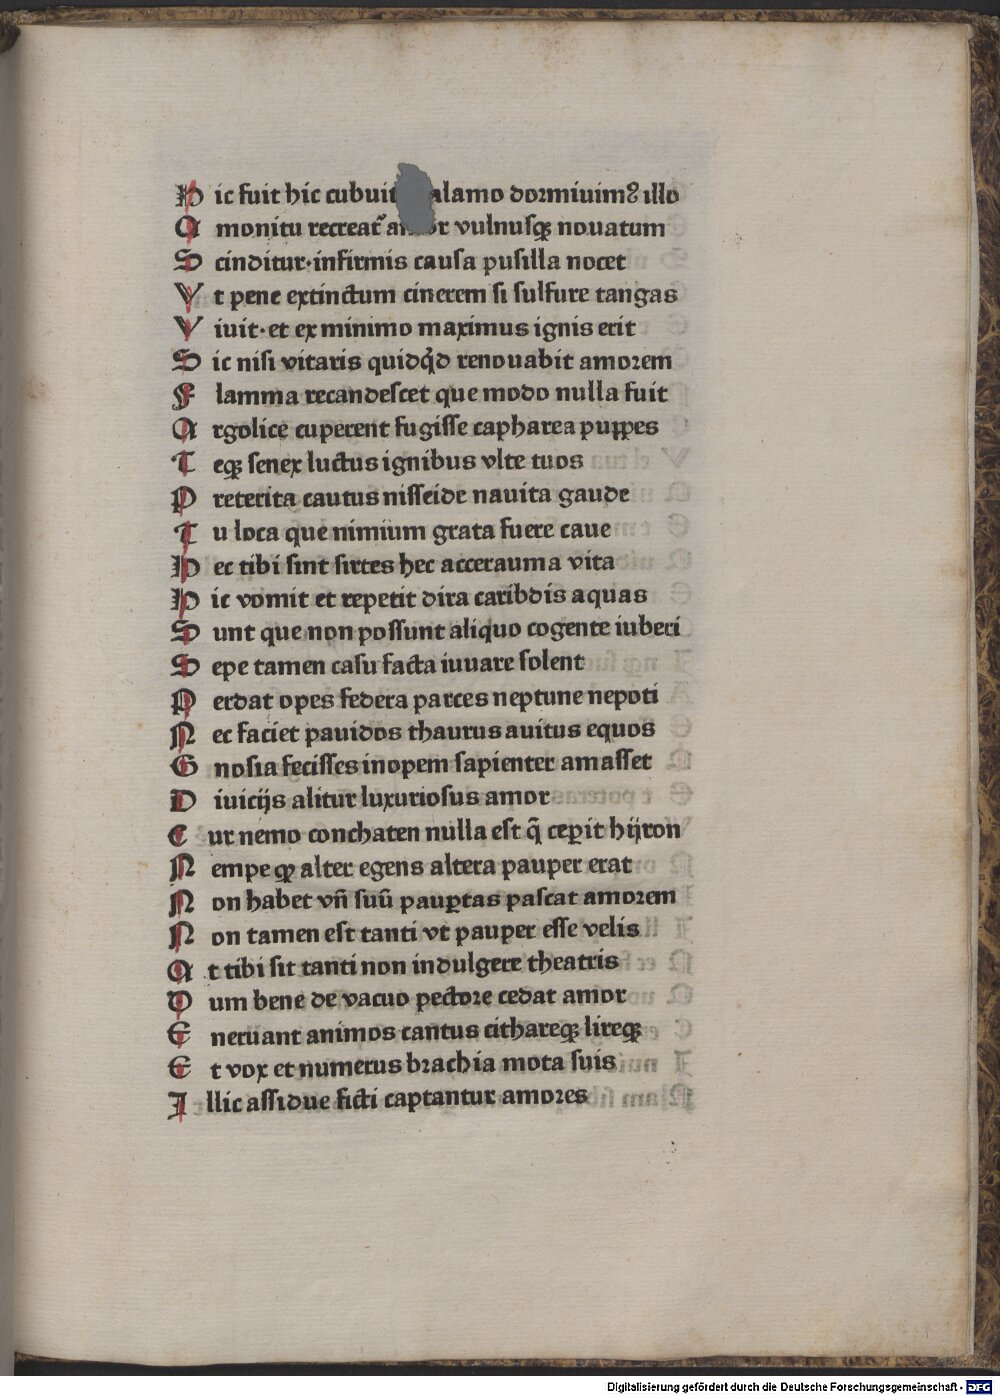 H ic fuit hic cubuit alamo dormiuimꝰ illo
A monitu recreat᷑ amor vulnusqꝫ nouatum
S cinditur·infirmis causa pusilla nocet
V t pene extinctum cinerem si sulfure tangas
V iuit·et ex minimo maximus ignis erit
S ic nisi vitaris quidq̇d renouabit amorem
F lamma recandescet que modo nulla fuit
A rgolice cuperent fugisse capharea puppes
T eqꝫ senex luctus ignibus vlte tuos
P reterita cautus nisseide nauita gaude
T u loca que nimium grata fuere caue
H ec tibi sint sirtes hec accerauma vita
H ic vomit et repetit dira caribdis aquas
S unt que non possunt aliquo cogente iuberi
S epe tamen casu facta iuuare solent
P erdat opes federa parces neptune nepoti
N ec faciet pauidos thaurus auitus equos
G nosia fecisses inopem sapienter amasset
D iuicijs alitur luxuriosus amor
C ur nemo conchaten nulla est q̄ceꝑit hijron
N empe qꝫ alter egens altera pauper erat
N on habet vñ suū pauꝑtas pascat amorem
N on tamen est tanti vt pauper esse velis
A t tibi sit tanti non indulgere theatris
D um bene de vacuo pectore cedat amor
E neruant animos cantus cithareqꝫ lireqꝫ
E t vox et numerus brachia mota suis
I llic assidue ficti captantur amores
Digitalisierung gefördert durch die Deutsche Forschungsgemeinschaft - DFG